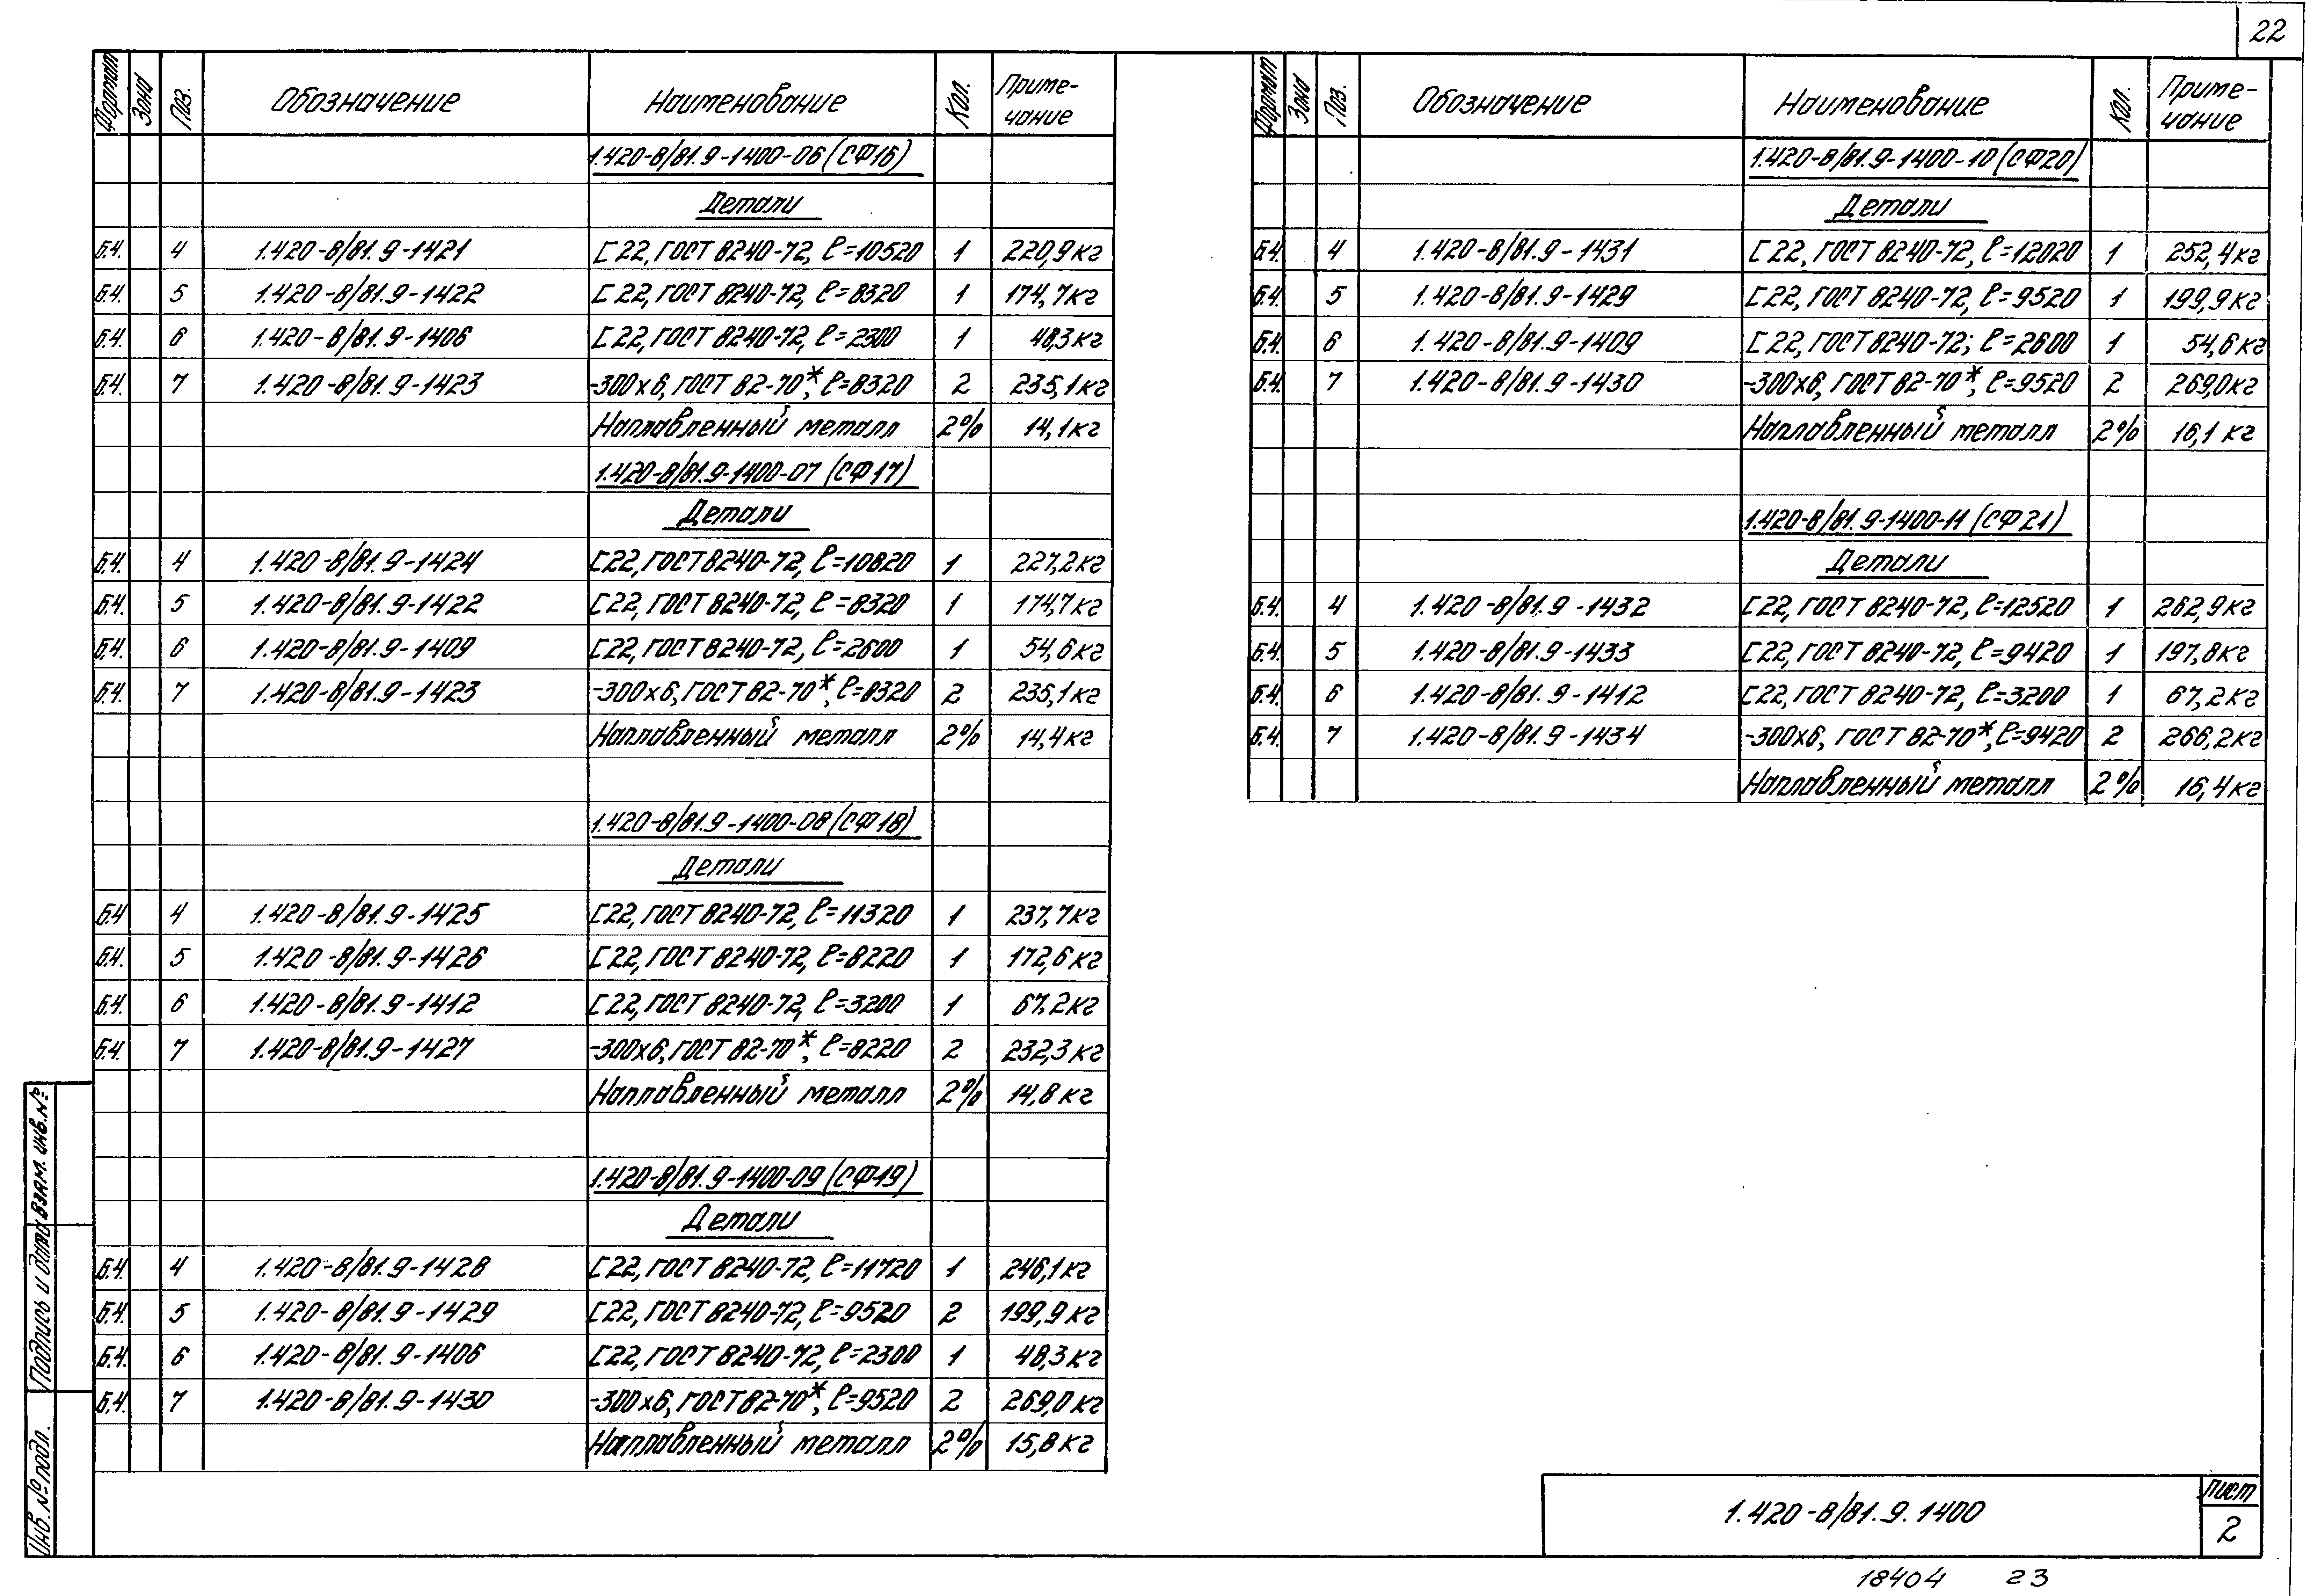 22
Формат Зона Поз. Обозначение Наименование Кол. Приме-
чание
1.420-8/81.9-1400-06 (СФ16)
Детали
Б.Ч. 4 1.420-8/81.9-1421 [22, ГОСТ 8240-72, ℓ=10520 1 220,9кг
Б.Ч. 5 1.420-8/81.9-1422 [22, ГОСТ 8240-72, ℓ=8320 1 174,7кг
Б.Ч. 6 1.420-8/81.9-1406 [22, ГОСТ 8240-72, ℓ=2300 1 48,3кг
Б.Ч. 7 1.420-8/81.9-1423 -300х6, ГОСТ 82-70*, ℓ=8320 2 235,1кг
Наплавленный металл 2% 14,1кг
1.420-8/81.9-1400-07 (СФ17)
Детали
Б.Ч. 4 1.420-8/81.9-1424 [22, ГОСТ 8240-72, ℓ=10820 1 227,2кг
Б.Ч. 5 1.420-8/81.9-1422 [22, ГОСТ 8240-72, ℓ=8320 1 174,7кг
Б.Ч. 6 1.420-8/81.9-1409 [22, ГОСТ 8240-72, ℓ=2600 1 54,6кг
Б.Ч. 7 1.420-8/81.9-1423 -300х6, ГОСТ 82-70*, ℓ=8320 2 235,1кг
Наплавленный металл 2% 14,4кг
1.420-8/81.9-1400-08 (СФ18)
Детали
Б.Ч 4 1.420-8/81.9-1425 [22, ГОСТ 8240-72, ℓ=11320 1 237,7кг
Б.Ч. 5 1.420-8/81.9-1426 [22, ГОСТ 8240-72, ℓ=8220 1 172,6кг
Б.Ч. 6 1.420-8/81.9-1412 [22, ГОСТ 8240-72, ℓ=3200 1 67,2кг
Б.Ч. 7 1.420-8/81.9-1427 -300х6, ГОСТ 82-70*, ℓ=8220 2 232,3кг
Наплавленный металл 2% 14,8кг
1.420-8/81.9-1400-09 (СФ19)
Детали
Б.Ч. 4 1.420-8/81.9-1428 [22, ГОСТ 8240-72, ℓ=11720 1 246,1кг
Б.Ч. 5 1.420-8/81.9-1429 [22, ГОСТ 8240-72, ℓ=9520 2 199,9кг
Б.Ч. 6 1.420-8/81.9-1406 [22, ГОСТ 8240-72, ℓ=2300 1 48,3кг
Б.Ч. 7 1.420-8/81.9-1430 -300х6, ГОСТ 82-70*, ℓ=9520 2 269,0кг
Наплавленный металл 2% 15,8кг
Формат Зона Поз. Обозначение Наименование Кол. Приме-
чание
1.420-8/81.9-1400-10 (СФ20)
Детали
Б.Ч 4 1.420-8/81.9-1431 [22, ГОСТ 8240-72, ℓ=12020 1 252,4кг
Б.Ч. 5 1.420-8/81.9-1429 [22, ГОСТ 8240-72, ℓ=9520 1 199,9кг
Б.Ч. 6 1.420-8/81.9-1409 [22, ГОСТ 8240-72; ℓ=2600 1 54,6кг
Б.Ч. 7 1.420-8/81.9-1430 -300х6, ГОСТ 82-70*, ℓ=9520 2 269,0кг
Наплавленный металл 2% 16,1 кг
1.420-8/81.9-1400-11 (СФ21)
Детали
Б.Ч. 4 1.420-8/81.9-1432 [22, ГОСТ 8240-72, ℓ=12520 1 262,9кг
Б.Ч. 5 1.420-8/81.9-1433 [22, ГОСТ 8240-72, ℓ=9420 1 197,8кг
Б.Ч. 6 1.420-8/81.9-1412 [22, ГОСТ 8240-72, ℓ=3200 1 67,2кг
Б.Ч. 7 1.420-8/81.9-1434 -300х6, ГОСТ 82-70*, ℓ=9420 2 266,2кг
Наплавленный металл 2% 16,4кг
Взам. инв. №
Подпись и дата
Инв. № подл.
1.420-8/81.9.1400
Лист
2
18404 23